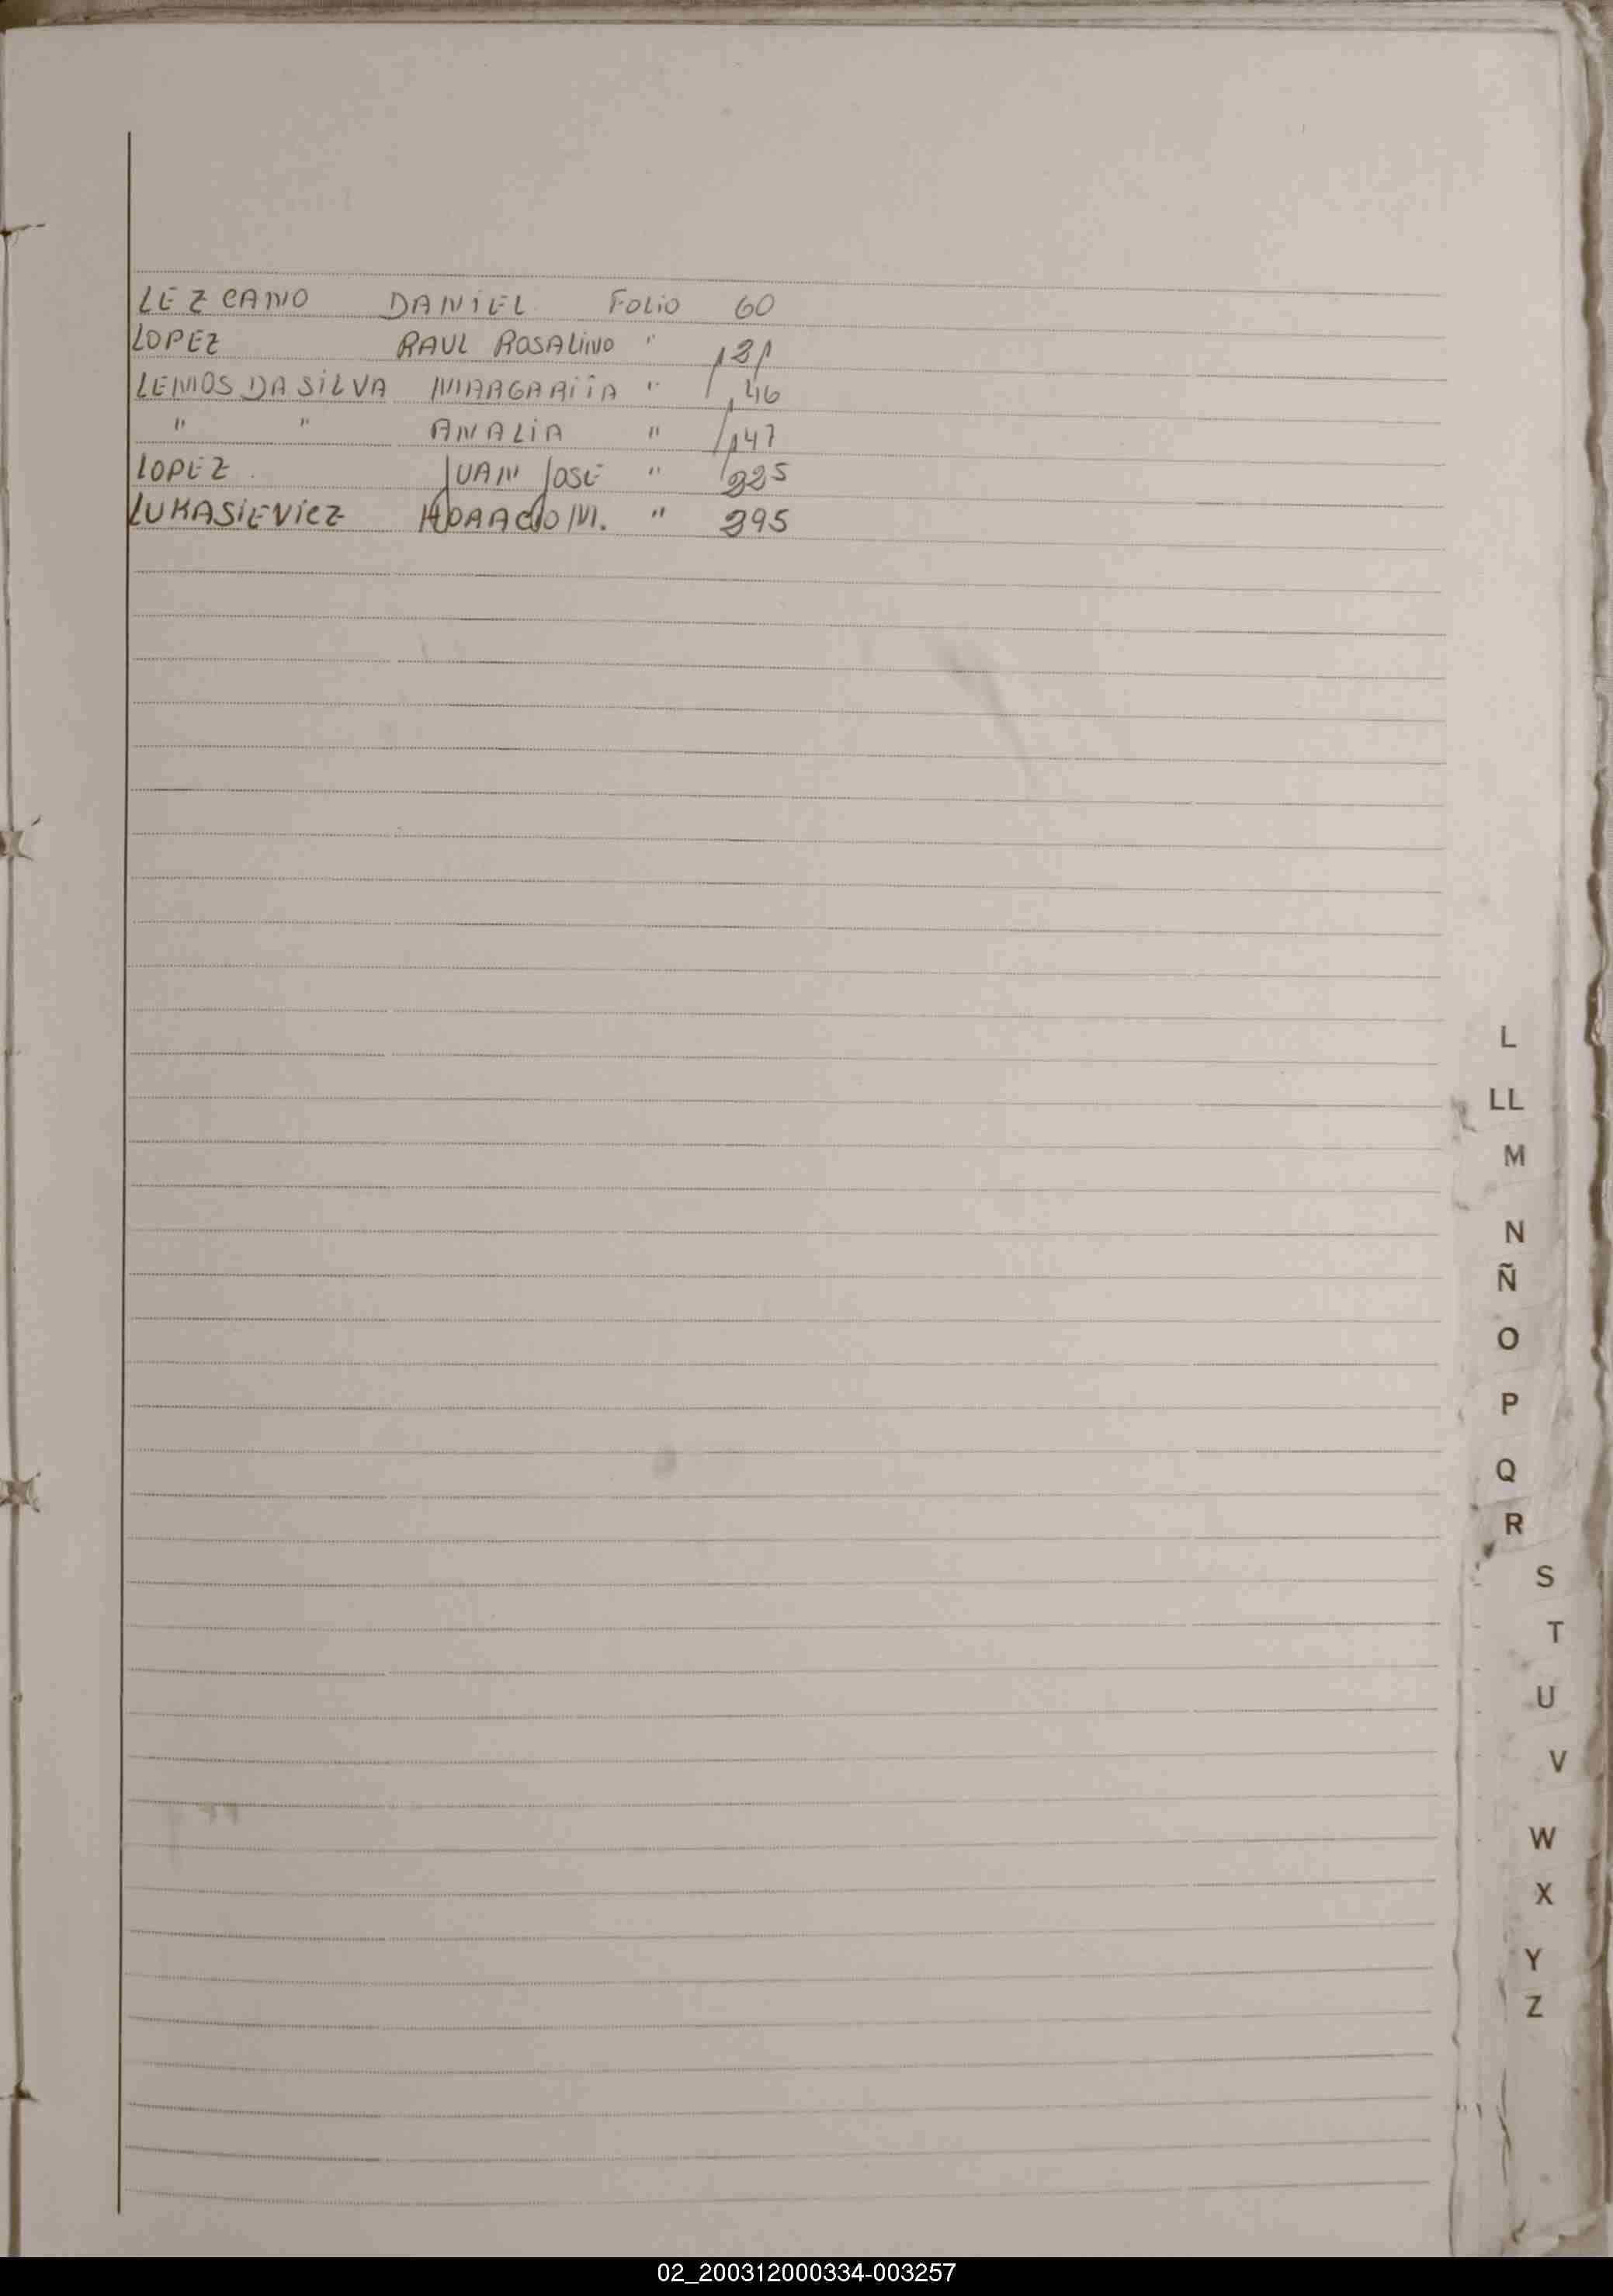 LEZCANO DANIEL. FOLIO 60
LOPEZ RAUL ROSALINO " 131
LEMOS DA SILVA MARGARITA " 146
" " ANALIA " 147
LOPEZ. JUAN JOSE "
LUKASIEVICZ HORACIO M. " 395
L
LL
M
N
Ñ
O
P
Q
R
S
T
U
V
W
X
Y
Z
02_200312000334-003257